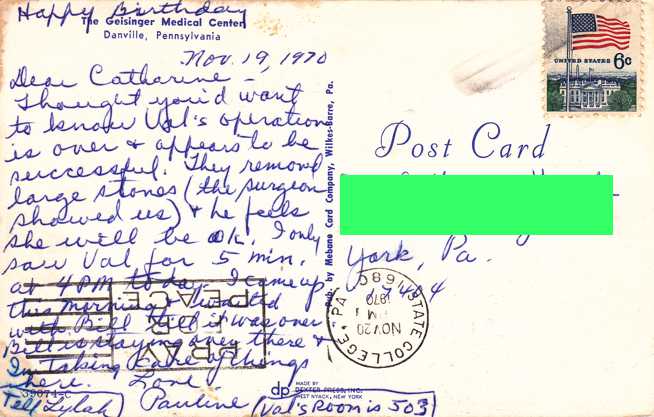 Happy Birthday
The Geisinger Medical Center
Danville, Pennsylvania
Nov. 19, 1970
Dear Catharine -
Thought you'd want
to know Val's operation
is over & appears to be
successful. They removed
large stones (the surgeon
showed us) & he feels
she will be ok. I only
saw Val for 5 min.
at 4 PM today. I came up
this morning & waited
with Bill till it was over
Bill is staying over there &
I'm taking care of things
here. Love,
Pauline
39074-C
Tell Lylah
(Val's Room is 503)
PRAY
FOR
PEACE
Pub. by Mebane Card Company, Wilkes-Barre, Pa.
dp
MADE BY
DEXTER PRESS, INC.
WEST NYACK, NEW YORK
UNITED STATES
6c
Post Card
York, Pa.
STATE COLLEGE PA 168
NOV 20
PM
1970